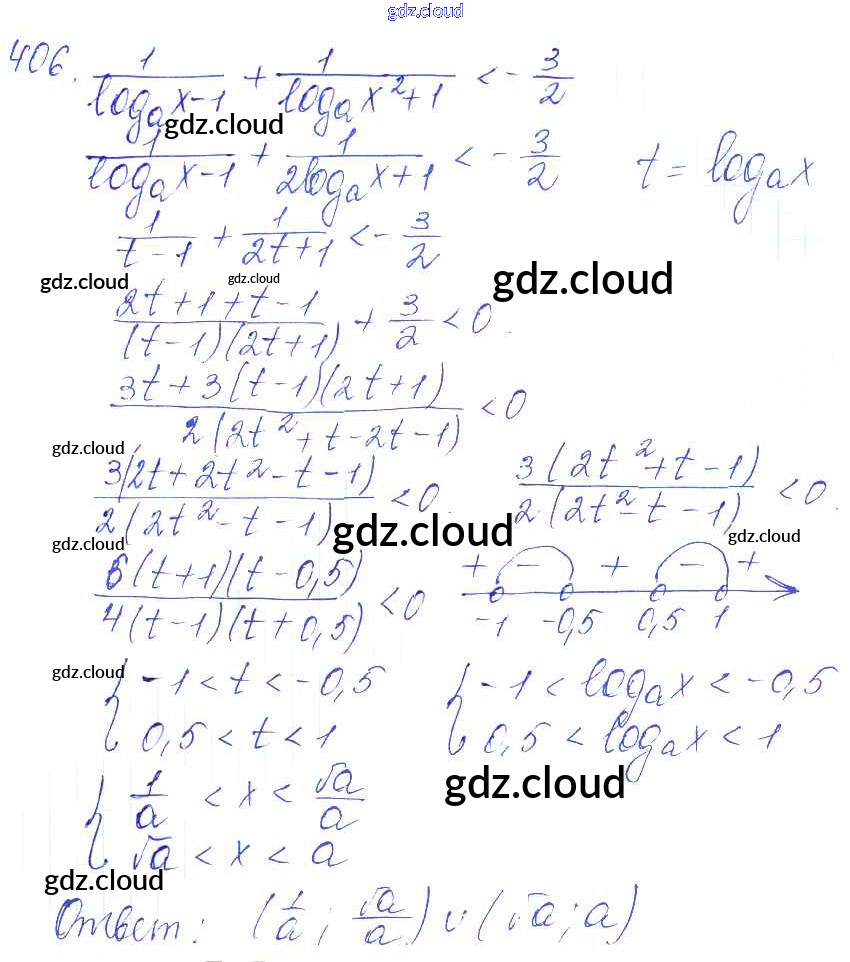 gdz.cloud
406. 1/(log_a x-1) + 1/(log_a x²+1) < - 3/2
gdz.cloud
1/(log_a x-1) + 1/(2log_a x+1) < - 3/2 t = log_a x
1/(t-1) + 1/(2t+1) < - 3/2
gdz.cloud gdz.cloud gdz.cloud
(2t+1+t-1)/((t-1)(2t+1)) + 3/2 < 0.
(3t+3(t-1)(2t+1))/(2(2t²+t-2t-1)) < 0
gdz.cloud
3(2t+2t²-t-1)/(2(2t²-t-1)) < 0. 3(2t²+t-1)/(2(2t²-t-1)) < 0.
gdz.cloud gdz.cloud gdz.cloud
6(t+1)(t-0,5)/(4(t-1)(t+0,5)) < 0 + - + - +
-1 -0,5 0,5 1
gdz.cloud
{ -1 < t < -0,5 { -1 < log_a x < -0,5
0,5 < t < 1 0,5 < log_a x < 1
gdz.cloud
{ 1/a < x < √a/a
√a < x < a
gdz.cloud
Ответ: (1/a; √a/a) ∪ (√a; a)